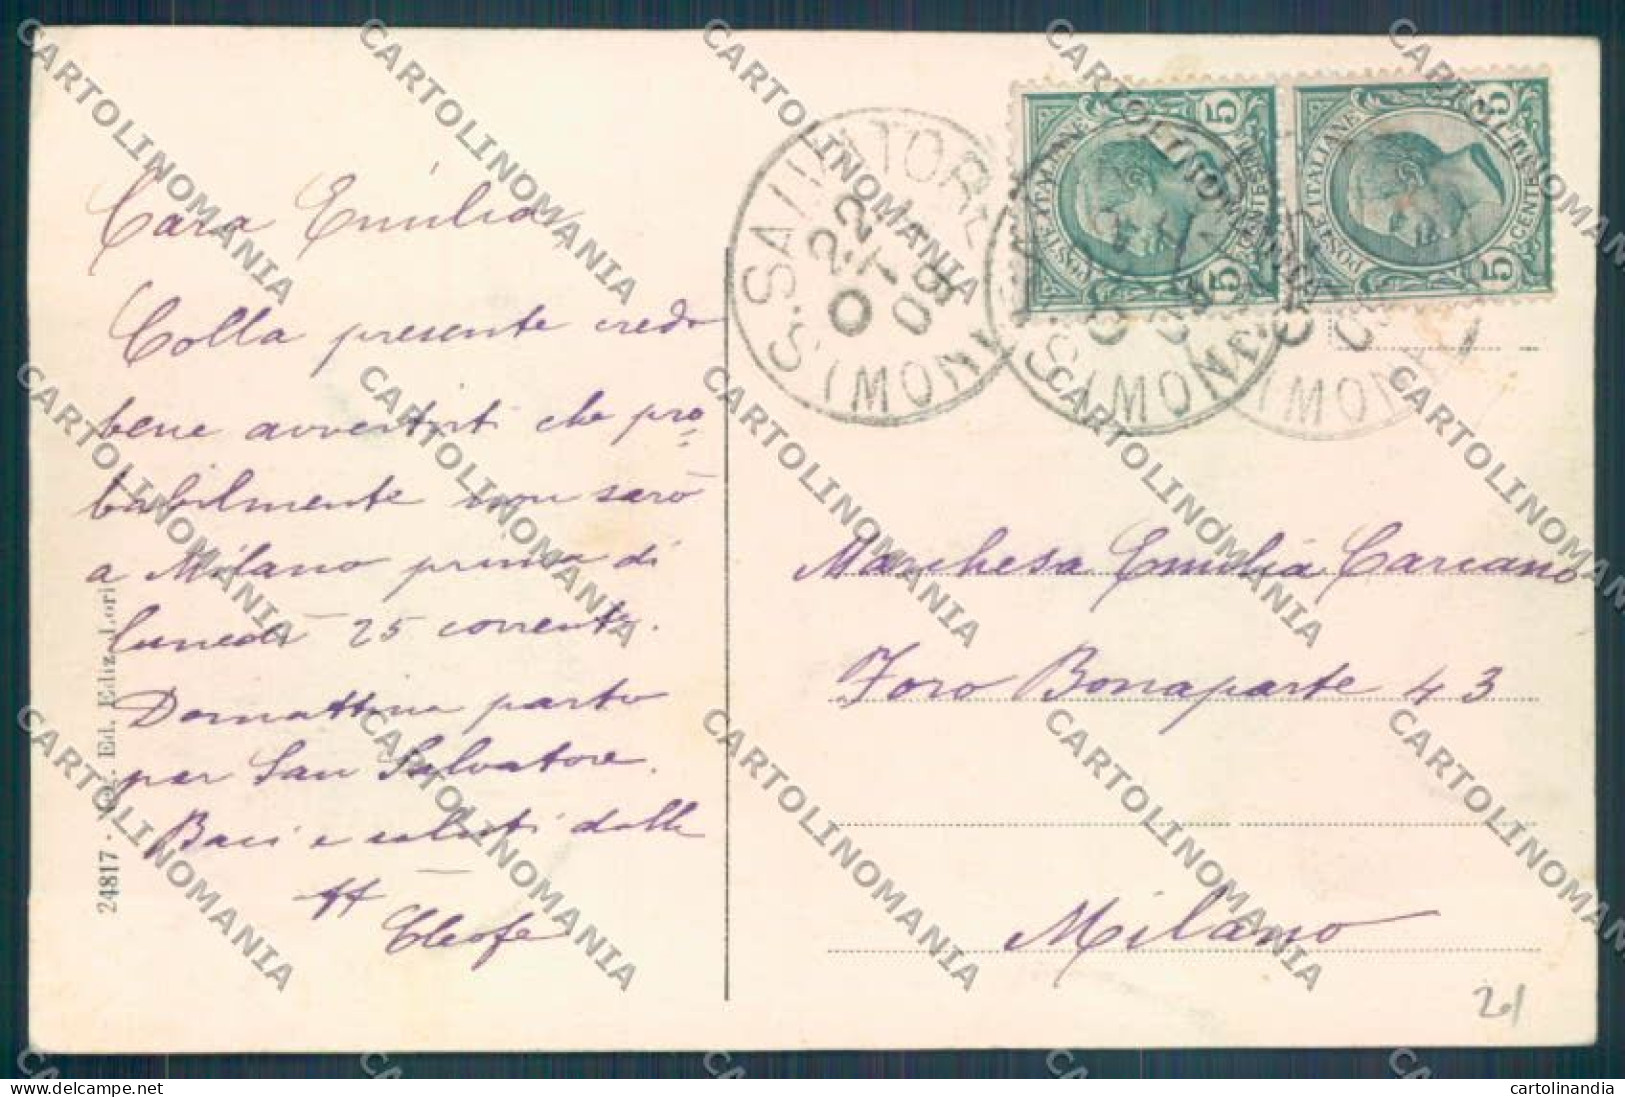 Cara Emilia
Colla presente credo
bene avvertirti che pro=
babilmente non sarò
a Milano prima di
lunedì 25 corrente.
Domattina parto
per San Salvatore.
Baci e saluti dalla
Cleofe
24817 · Ed. Eliz. Lori
S. SALVATORE (MON
22 - 1 08
POSTE ITALIANE
CENTESIMI
5 5
POSTE ITALIANE
CENTESIMI
5 5
Marchesa Emilia Carcano
Foro Bonaparte 43
Milano
201
CARTOLINOMANIA
cartolinandia